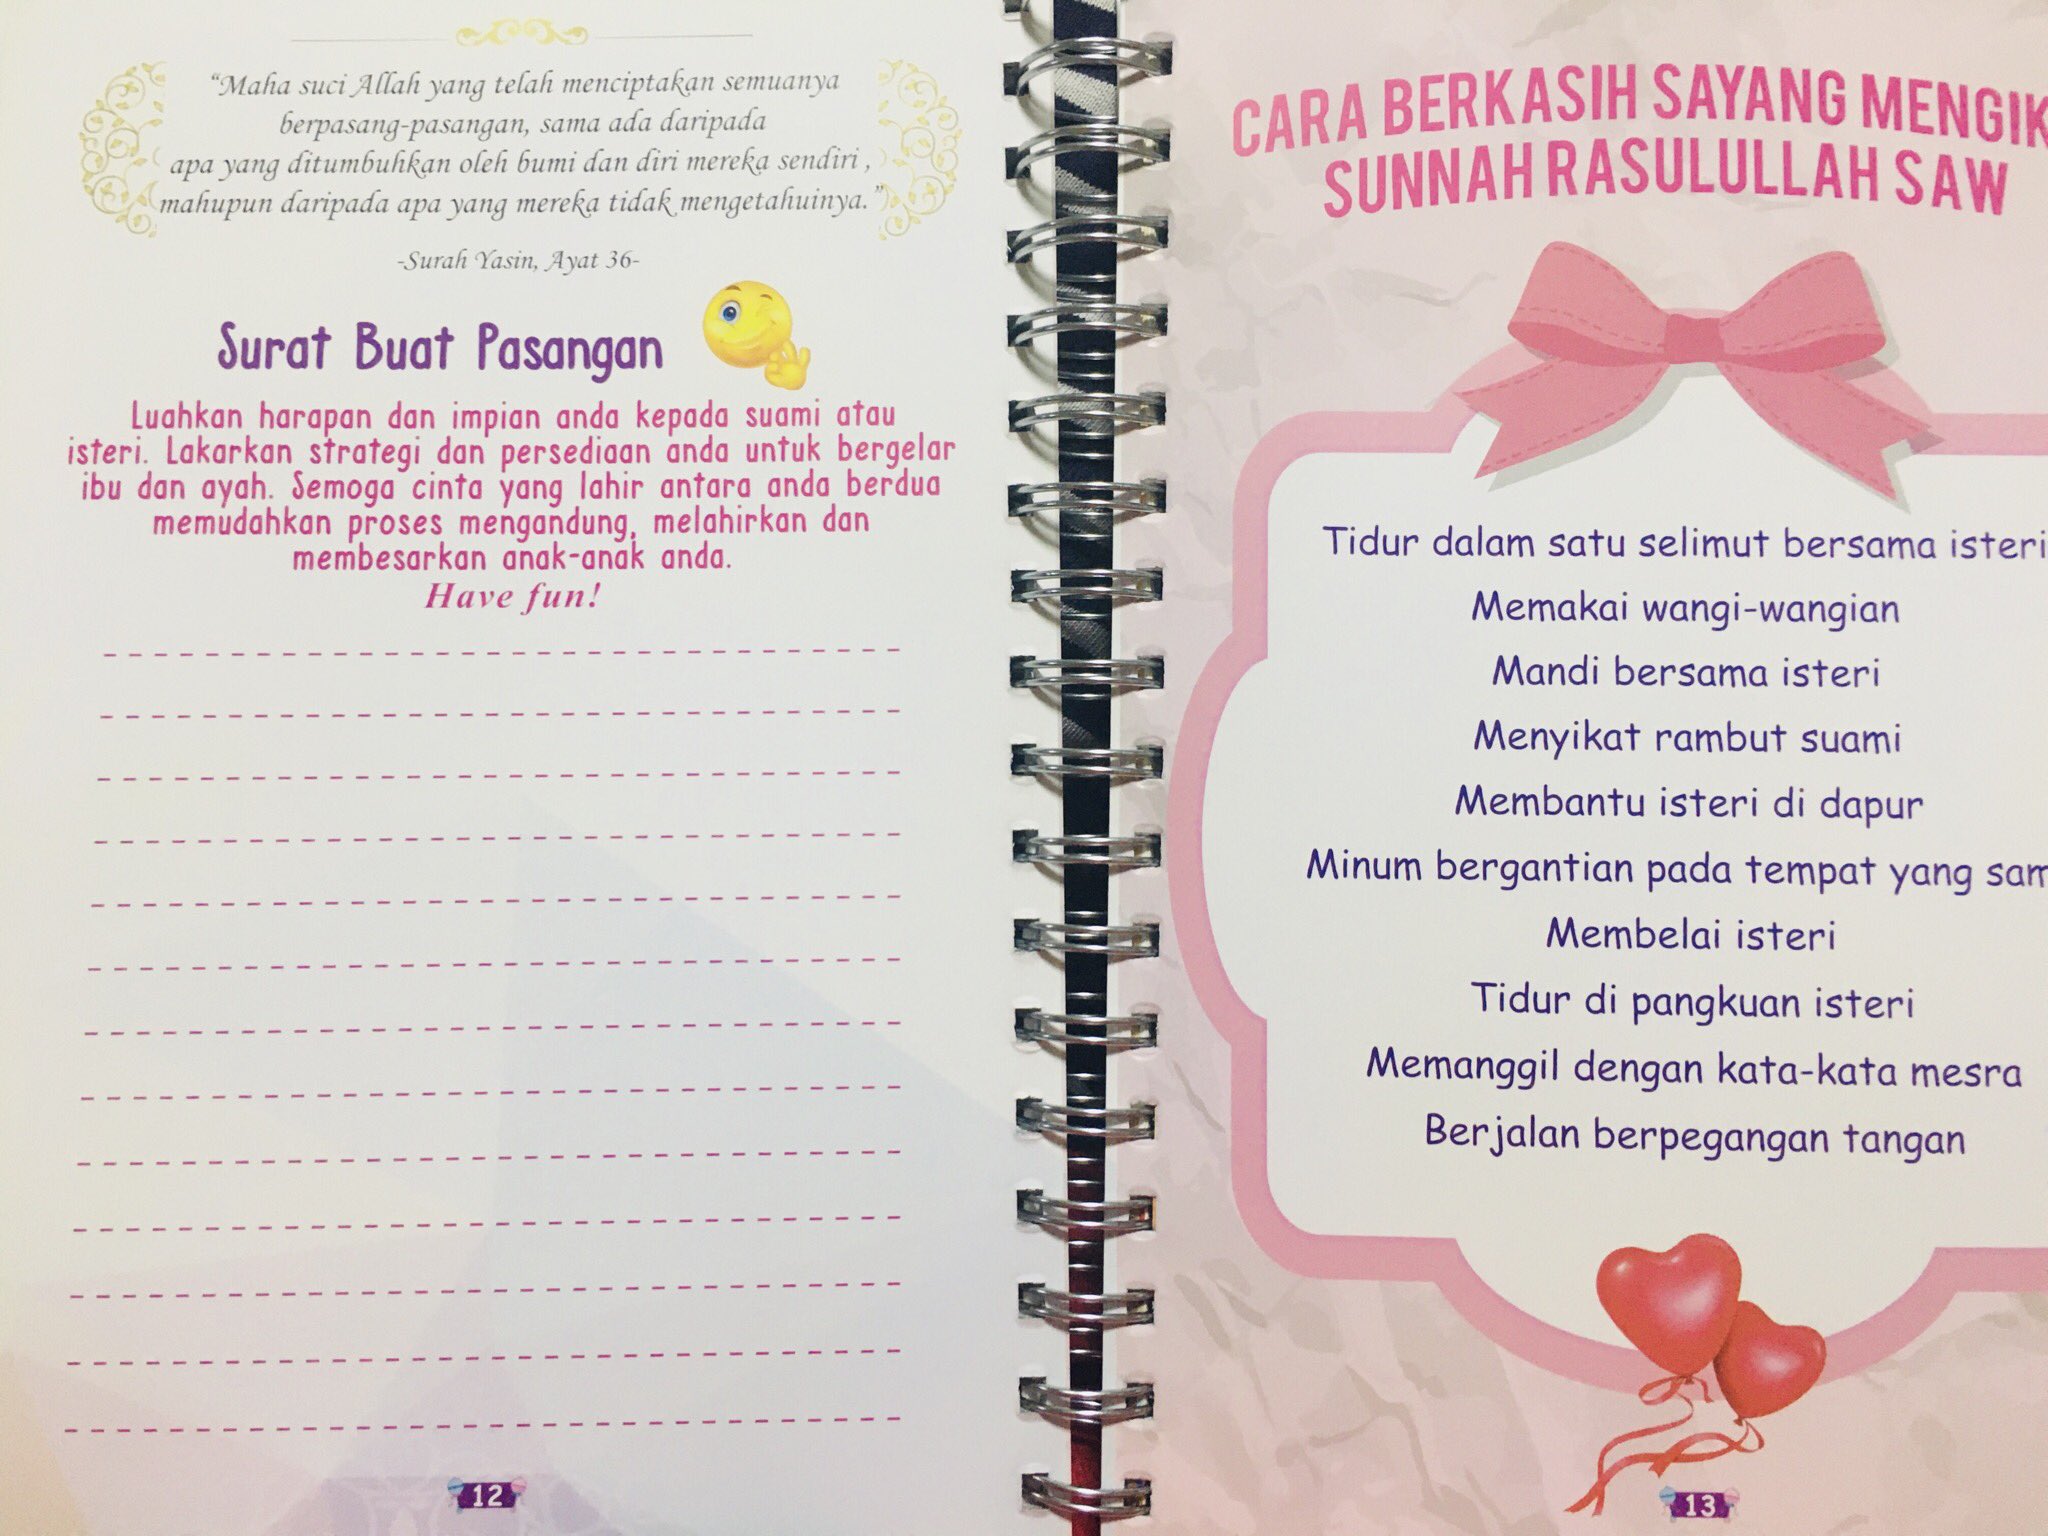 “Maha suci Allah yang telah menciptakan semuanya
berpasang-pasangan, sama ada daripada
apa yang ditumbuhkan oleh bumi dan diri mereka sendiri ,
mahupun daripada apa yang mereka tidak mengetahuinya.”
-Surah Yasin, Ayat 36-
Surat Buat Pasangan
Luahkan harapan dan impian anda kepada suami atau
isteri. Lakarkan strategi dan persediaan anda untuk bergelar
ibu dan ayah. Semoga cinta yang lahir antara anda berdua
memudahkan proses mengandung, melahirkan dan
membesarkan anak-anak anda.
Have fun!
12
CARA BERKASIH SAYANG MENGIK
SUNNAH RASULULLAH SAW
Tidur dalam satu selimut bersama isteri
Memakai wangi-wangian
Mandi bersama isteri
Menyikat rambut suami
Membantu isteri di dapur
Minum bergantian pada tempat yang sam
Membelai isteri
Tidur di pangkuan isteri
Memanggil dengan kata-kata mesra
Berjalan berpegangan tangan
13